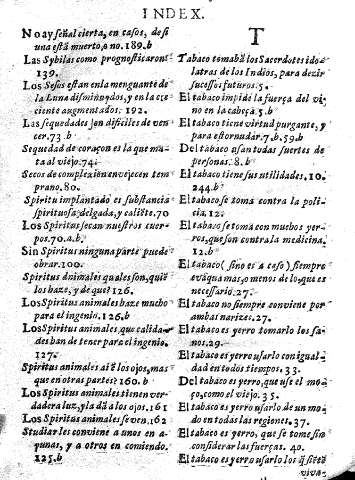 INDEX.
No ay señal cierta, en casos, de si
una està muerto, o no. 189.b
Las Sybilas como prognosticaron?
139.
Los Sesos estan en la menguante de
la Luna disminuydos, y en la cre
ciente augmentados. 192.
Las sequedades son dificiles de ven
cer. 73.b
Sequedad de coraçon es la que ma
ta al viejo. 74.
Secos de complexion envejecen tem
prano. 80.
Spiritu implantado es substancia
spirituosa, delgada, y caliẽte. 70
Los Spiritus secan nuestros cuer
pos. 70.a.b.
Sin Spiritus ninguna parte puede
obrar. 100.
Spiritus animales quales son, quiẽ
los haze, y de que? 126.
Los Spiritus animales haze mucho
para el ingenio. 126.b
Los Spiritus animales, que calida
des han de tener para el ingenio.
127.
Spiritus animales ai ẽ los ojos, mas
que en otras partes? 160.b
Los Spiritus animales tienen ver-
dadera luz, y la dã a los ojos. 161
Los Spiritus animales se ven. 162
Studiar les conviene a unos en a-
yunas, y a otros en comiendo.
125.b
T
Tabaco tomabã los Sacerdotes ido
latras de los Indios, para dezir
sucessos futuros. 5.
El tabaco impide la fuerça del vi
no en la cabeça. 5.b
El tabaco tiene virtud purgante, y
para estornudar. 7.b, 59.b
Del tabaco usan todas suertes de
personas. 8.b
El tabaco tiene sus utilidades. 10.
244.b
El tabaco se toma contra la poli-
cia. 12.
El tabaco se toma con muchos yer-
ros, que son contra la medicina.
12.b
El tabaco (sino es a caso) siempre
evaqua mas, o menos de lo, que es
necessario. 27.
El tabaco no siempre conviene por
ambas narizes. 27.
El tabaco es yerro tomarlo los sa-
nos. 29.
El tabaco es yerro usarlo con igual-
dad en todos tiempos. 33.
Del tabaco es yerro, que use el mo-
ço, como el viejo. 35.
El tabaco es yerro usarlo de un mo-
do en todas las regiones. 37.
El tabaco es yerro, que se tome sin
considerar las fuerças. 40.
El tabaco es yerro usarlo los q̃ siẽte